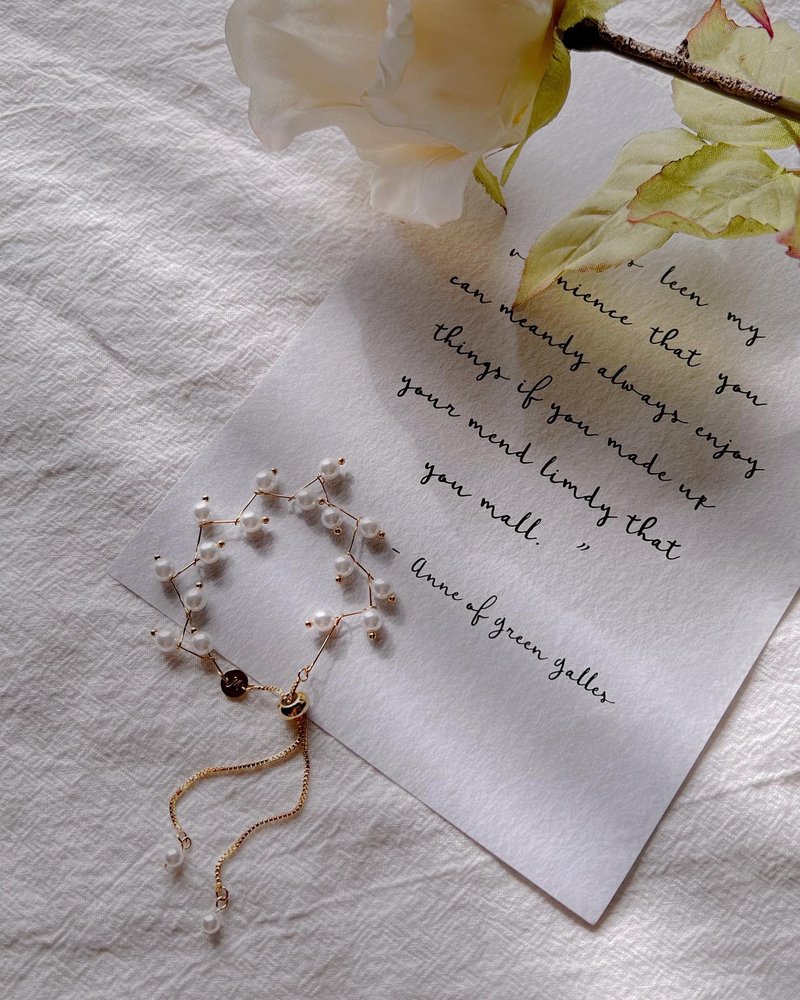 leen my
nience that you
can meandy always enjoy
things if you made up
your mend limdy that
you mall. ”
– Anne of green galles